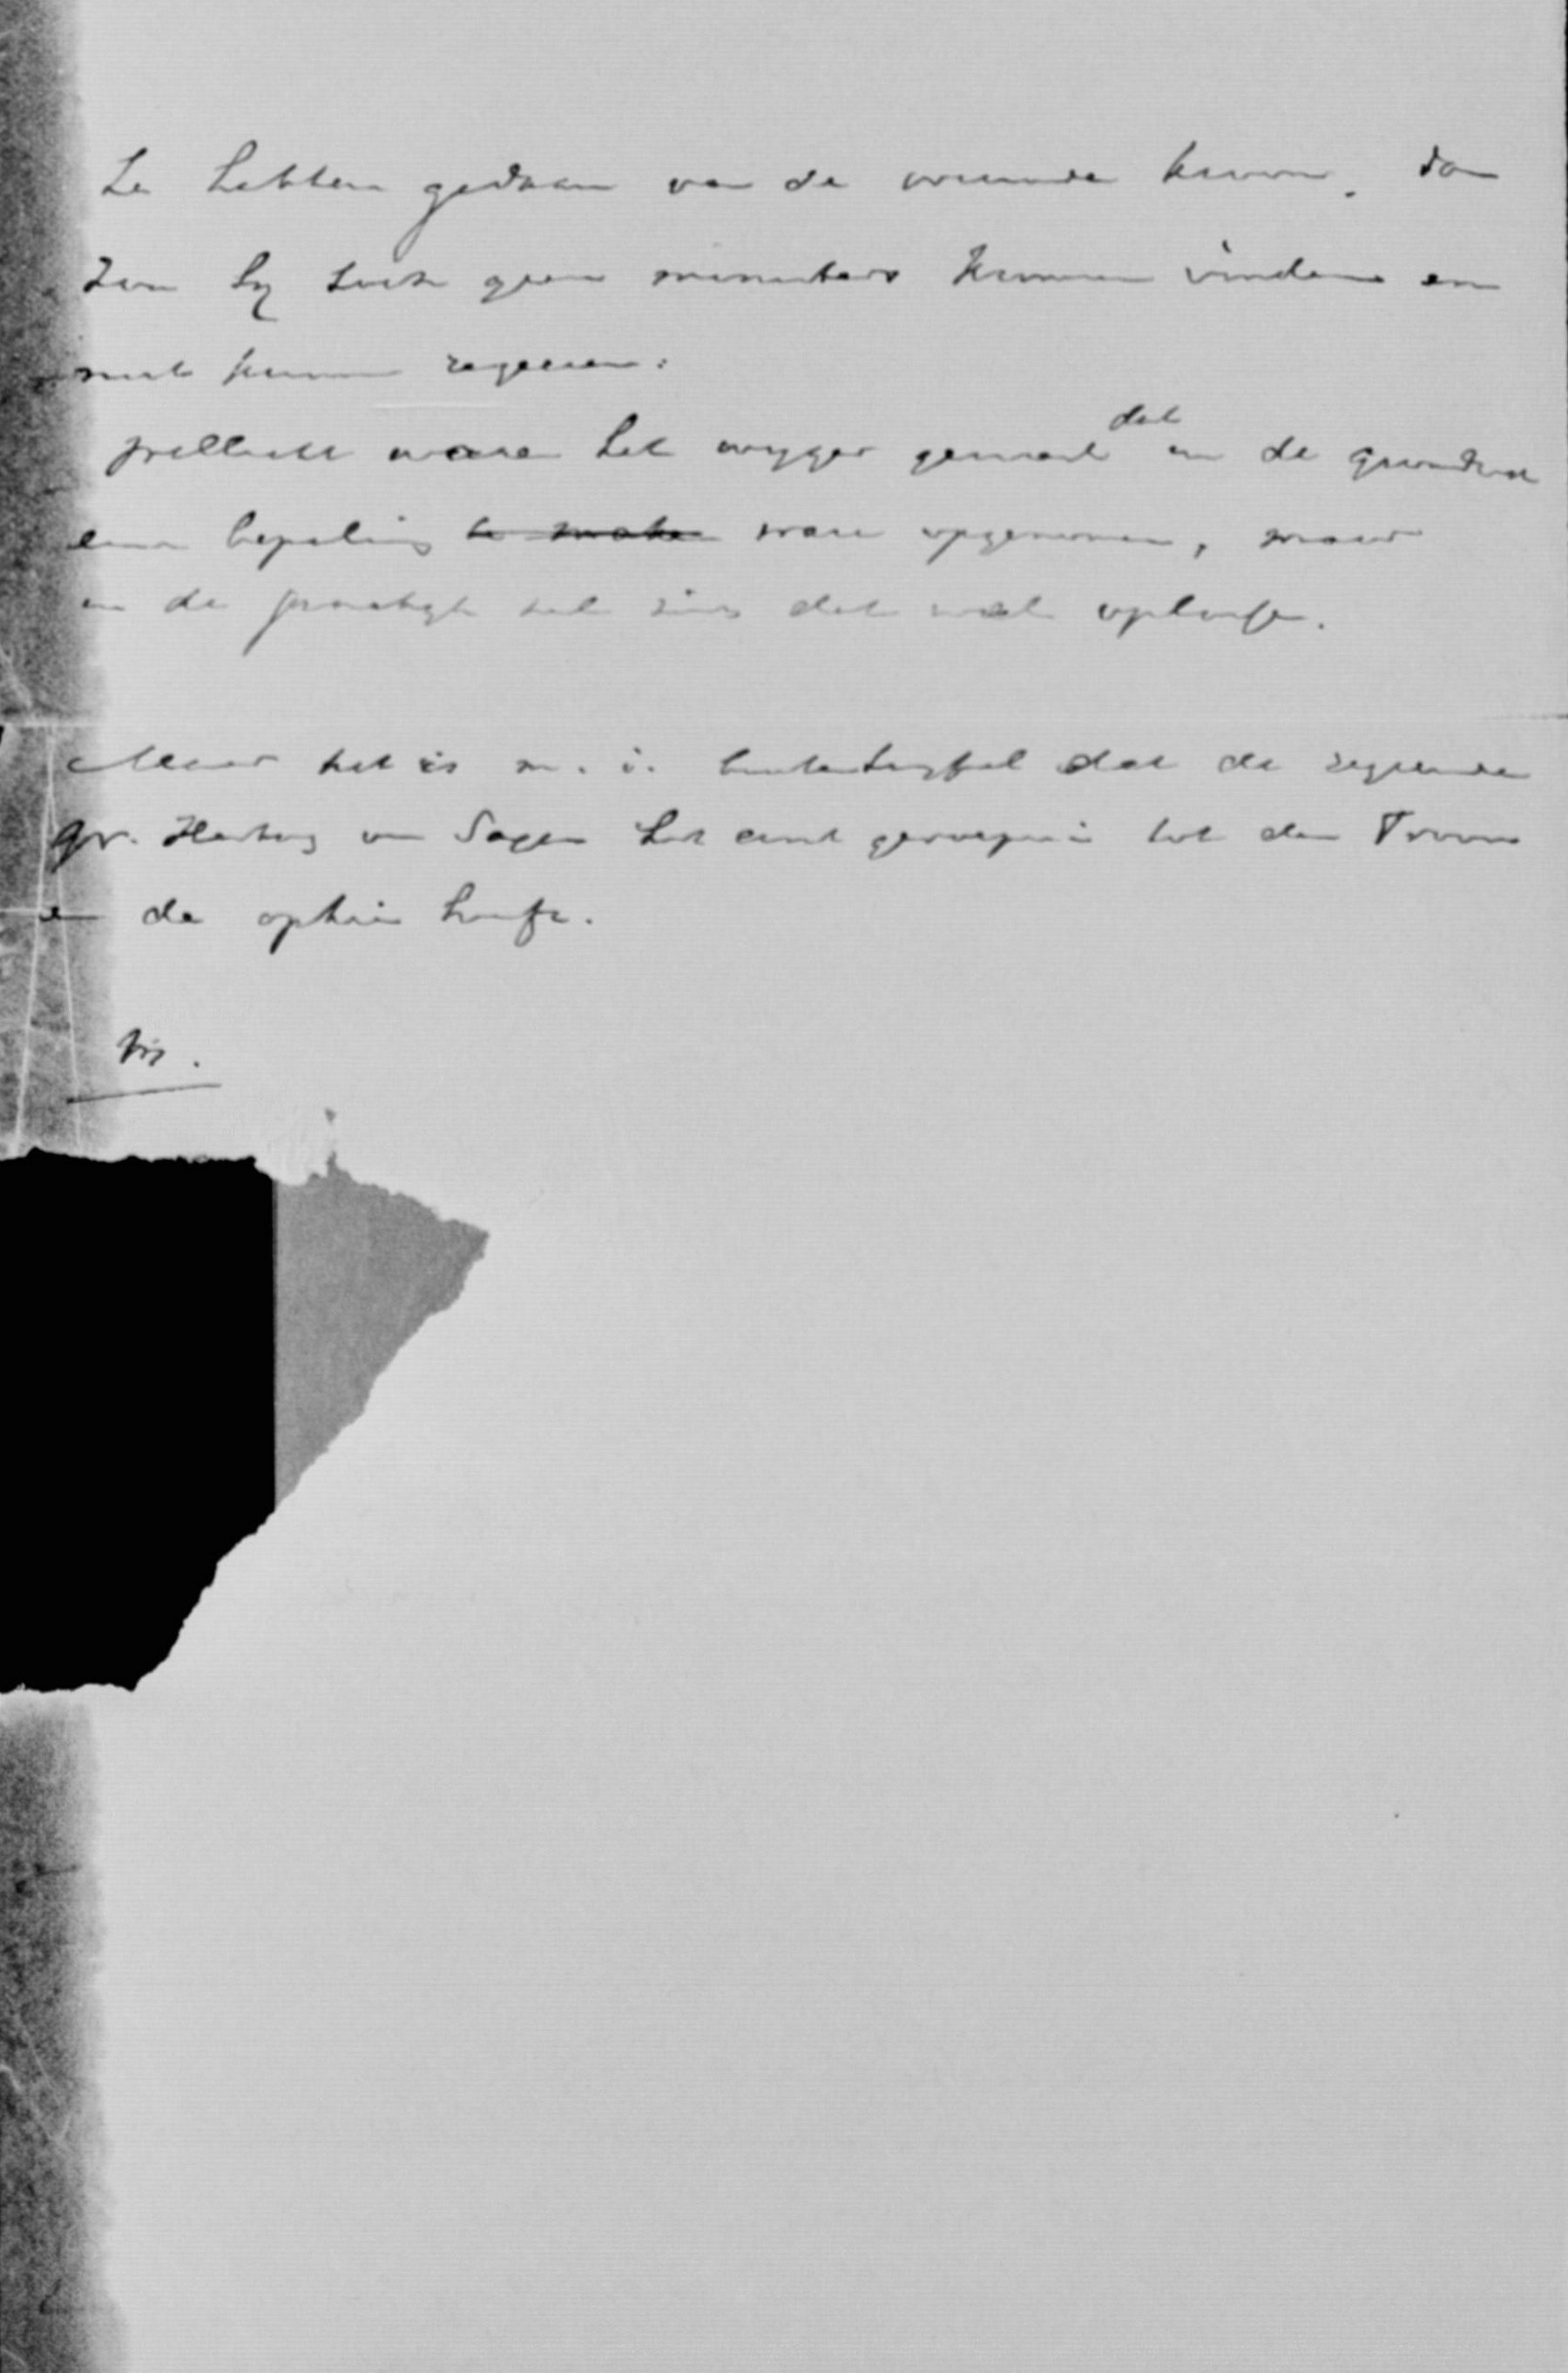 te hebben gedaan van de vreemde kroon. Dan
zou hij toch geen ministers kunnen vinden en
niet kunnen regeeren:
wellicht ware het wijzer geweest dat in de grondwet
een bepaling te maken ware opgenomen, maar
in de practijk zal zich dat wel oplossen.
Maar het is m. i. buiten twijfel dat de regeerende
Gr. Hertog van Saxen het eerst geroepen is tot den Troon
en de optie heeft.